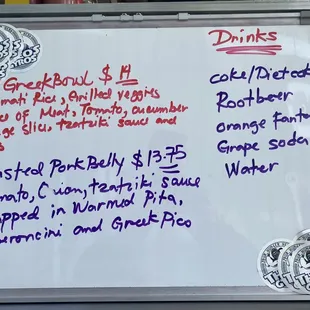 Greek Bowl $14
mati Rice, Grilled veggies
of Meat, Tomato, cucumber
slice, tzatziki sauce and
sted Pork Belly $13.75
mato, Onion, tzatziki sauce
pped in Warmed Pita,
peroncini and Greek Pico
Drinks
coke/Diet cok
Rootbeer
orange Fanta
Grape soda
Water